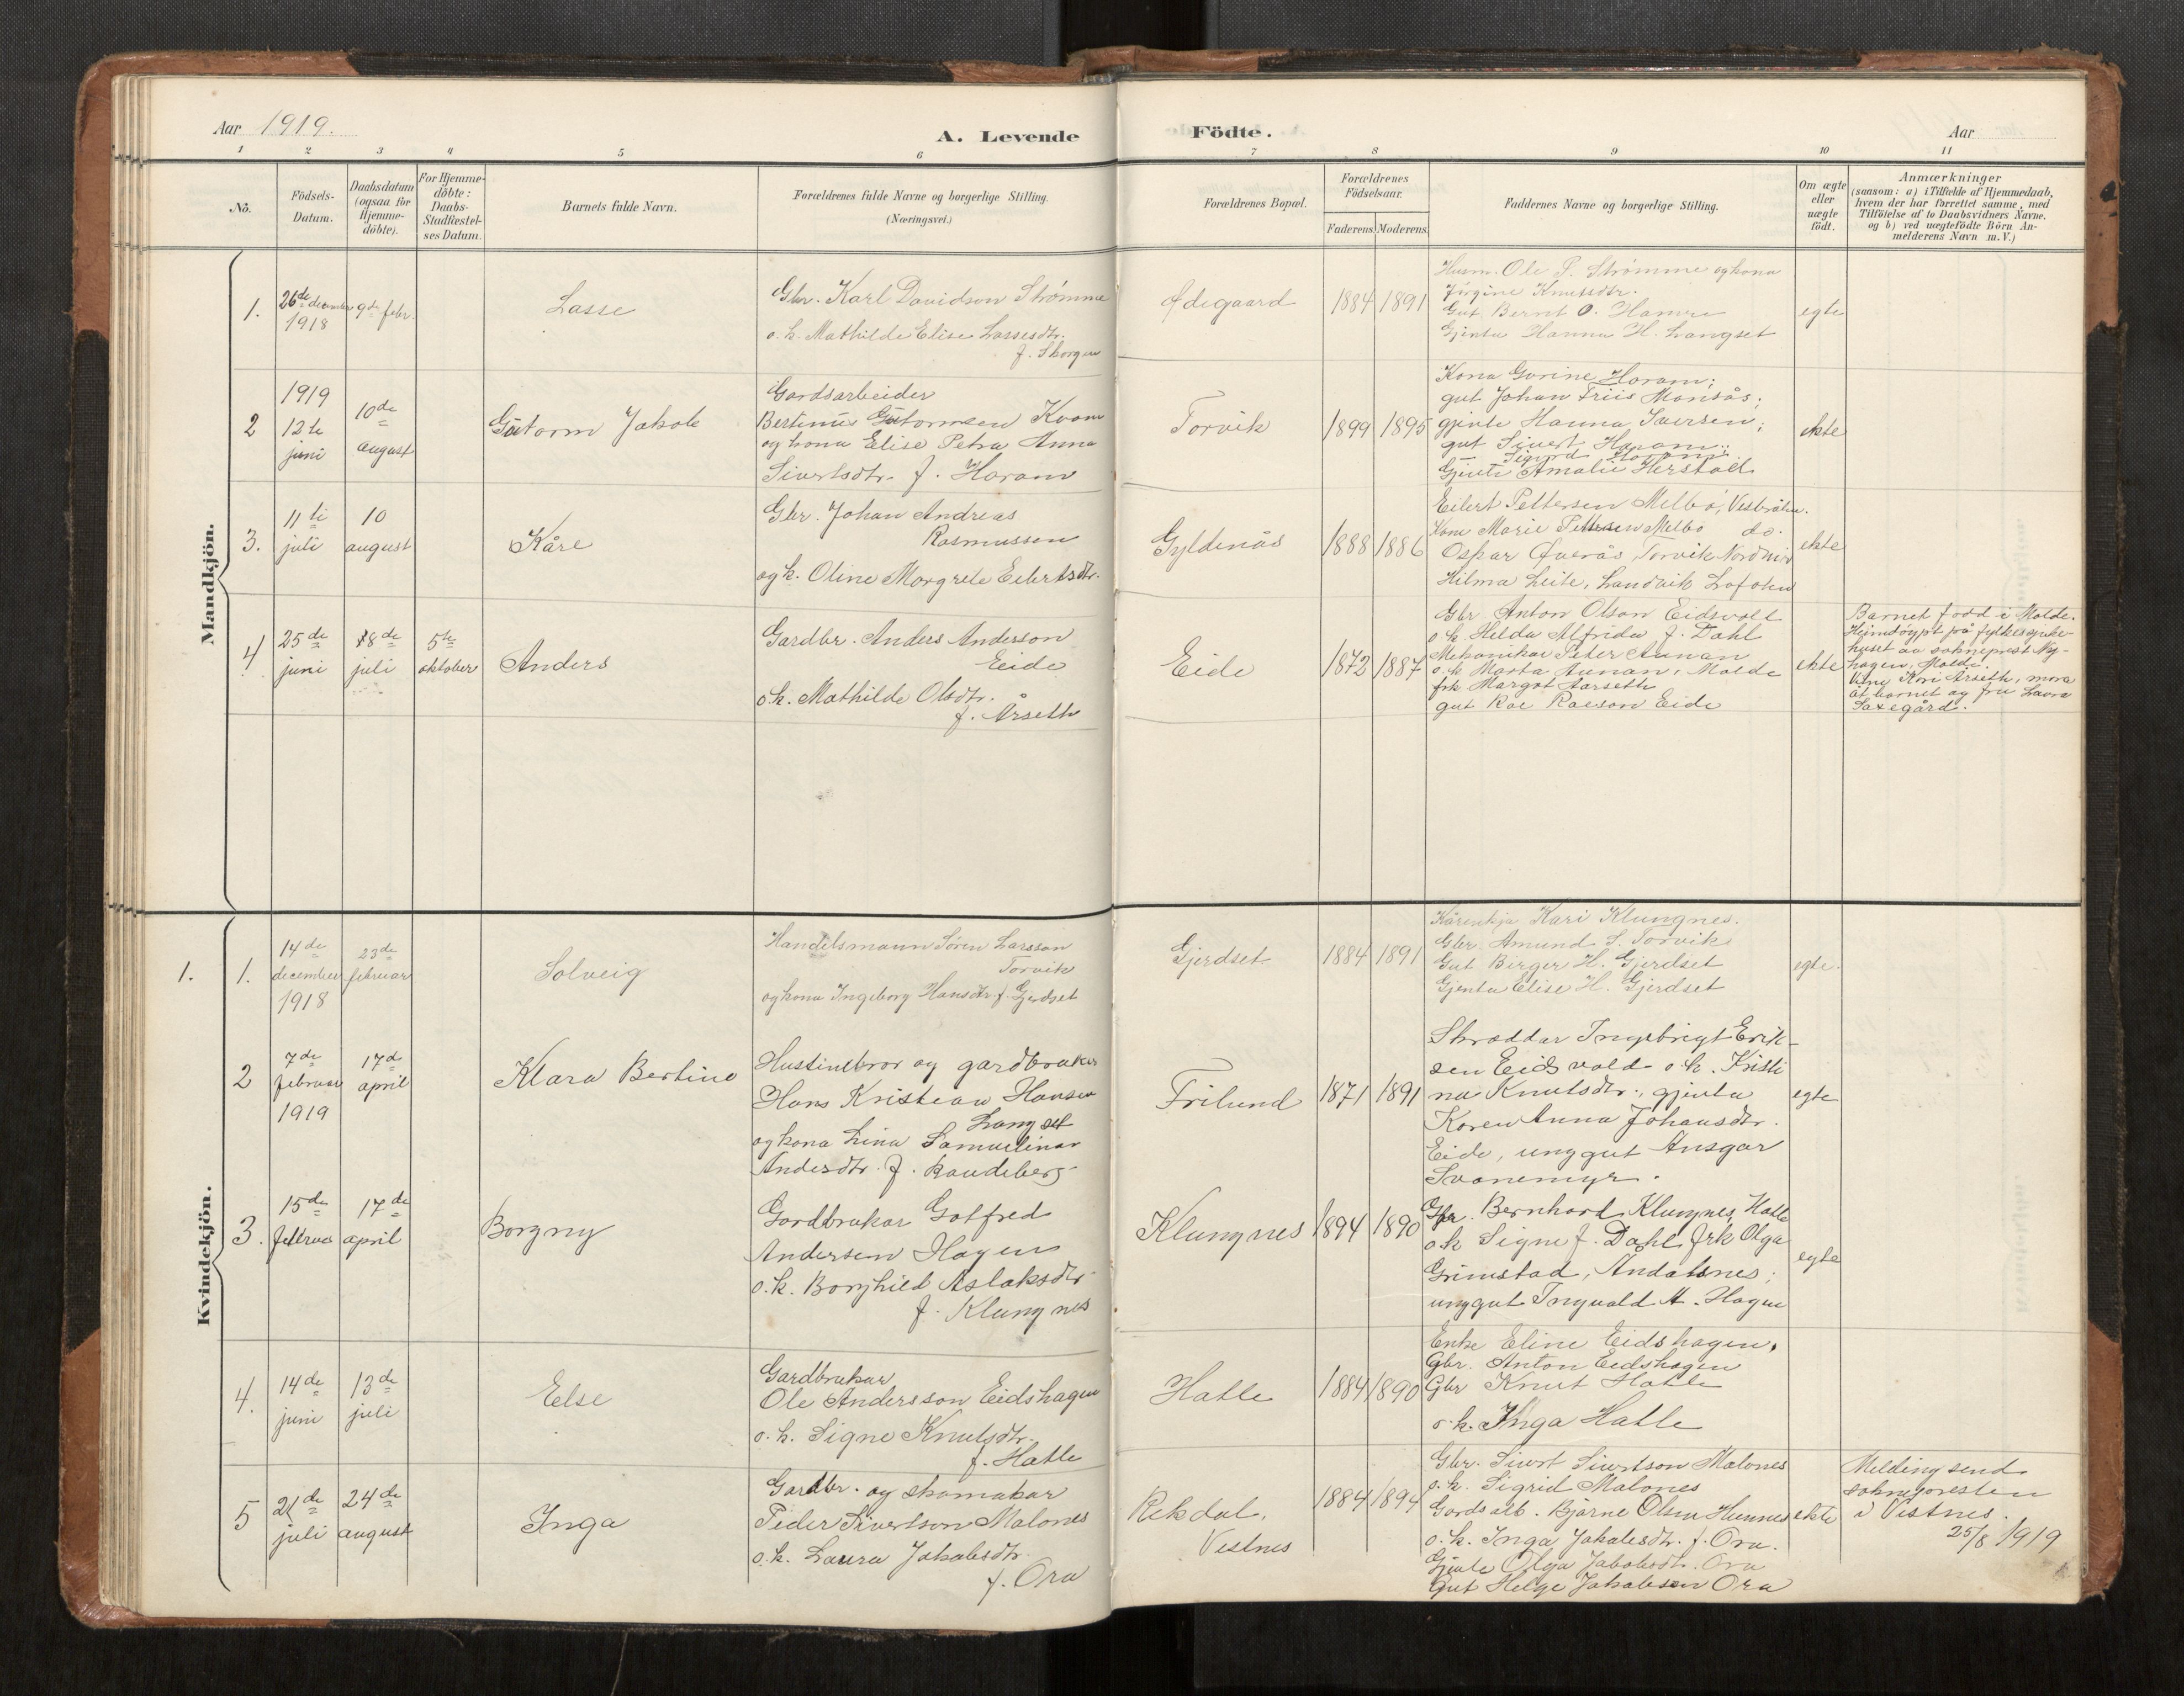 Aar 1919.
A. Levende Födte.
Aar
1 2 3 4 5 6 7 8 9 10 11
No.
Födsels-Datum.
Daabsdatum (ogsaa for Hjemme-döbte).
For Hjemme-döbte: Daabs-Stadfæstel-ses Datum.
Barnets fulde Navn.
Forældrenes fulde Navne og borgerlige Stilling.
(Næringsvei.)
Forældrenes Bopæl.
Forældrenes Födselsaar.
Faderens. Moderens.
Faddernes Navne og borgerlige Stilling.
Om ægte eller uægte födt.
Anmærkninger
(saasom: a) i Tilfælde af Hjemmedaab,
hvem der har forrettet samme, med
Tilföielse af to Daabsvidners Navne.
og b) ved uægtefödte Börn An-
melderens Navn m. V.)
Mandkjön.
1.
26de december
1918
9de febr.
Lasse
Gbr. Karl Davidson Strømme
o. k. Mathilde Elise Lassesdtr.
f. Skorgen
Ødegaard
1884 1891
Husm. Ole P. Strømme og kona
Jørgine Knutsdtr.
Gut Bernt O. Hamre
Gjenta Hanna H. Langset
egte
2
1919
12te
juni
10de
august
Gutorm Jakob
Gardsarbeider
Bertinus Gutormsen Kvam
og kona Elise Petra Anna
Sivertsdtr. f. Haram
Torvik
1899 1895
Kona Gurine Haram;
gut Johan Friis Monsås;
gjente Hanna Iversen;
gut Sivert Haram;
" Sigurd Haram;
Gjente Amalie Herstad
ekte
3.
11te
juli
10
august
Kåre
Gbr. Johan Andreas
Rasmussen
og k. Oline Margrete Eilertsdtr.
Gyldenås
1888 1886
Eilert Pettersen Melbö,
Kone Marie Pettersen Melbo do.
Ospar Øverås, Torvik
Hilma Leite, Landvik Lofoten
ekte
4
25de
juni
18de
juli
5te
oktober
Anders
Gardbr. Anders Anderson
Eide
o.k. Mathilde Olsdtr.
f. Årseth
Eide
1872 1887
Gbr Anton Olson Eidsvolt
o. k. Helda Alfrida f. Dahl
Mekanikar Peter Aunan
o. k. Marta Aunan, Molde
frk Margot Aarseth
gut Roe Roeson Eide
ekte
Barnet fødd i Molde.
Heimdöypt på fylkessjuke-
huset av sokneprest Ny-
hagen, Molde.
Vitne Kari Årseth, mora
åt barnet og fru Laura
Saxegård.
Kvindekjön.
1. 1.
14de
december
1918
23de
februar
Solveig
Handelsmann Søren Larsson
Torvik
og kona Ingeborg Hansdtr. f. Gjerdset
Gjerdset
1884 1891
Kårenkja Kari Klungnes.
Gbr. Amund S. Torvik
Gut Birger H. Gjerdset
Gjenta Elise H. Gjerdset
egte.
2
7de
februar
1919
17de
april
Klara Bertine
og gardbruker
Hans Kristean Hansen
Langset
og kona Lina Samueline
Andersdtr. f. Raudeberg
Frilund
1871 1891
Skræddar Ingebrigt Erik-
sen Eidsvold o.k. Kristi
na Knutsdtr.; gjenta
Karen Anna Johansdtr.
Eide, unggut Ansgar
Svanemyr.
egte
3.
15de
februa
17de
april
Borgny
Gardbrukar Gotfred
Andersen Hagen
o.k. Borghild Aslaksdtr
f. Klungnes
Klungnes
1894 1890
Gbr. Bernhard Klungnes, Hatle
o k Signe f. Dahl frk Olga
Grimstad, Andalsnes;
unggut Ingvald A. Hagen
egte
4.
14de
juni
13de
juli
Else
Gardbrukar
Ole Andersson Eidshagen
o. k. Signe Knutsdtr.
f. Hatle
Hatle
1884 1890
Enke Eline Eidshagen,
Gbr. Anton Eidshagen
Gbr Knut Hatle
o. k. Inga Hatle
5
21de
juli
24de
august
Inga
Gardbr. og skomakar
Peder Sivertson Malones
o. k. Laura Jakobsdtr.
f. Ora
Rekdal,
Vestnes
1884 1894
Gbr. Sivert Sivertson Malones
o. k. Sigrid Malones
Gards arb. Bjarne Olsen Hunnes
o. k. Inga Jakobsdtr. f. Ora.
Gjente Olga Jakobsdtr. Ora
Gut Helge Jakobsen Ora
ekte
Melding send
soknepresten
i Vestnes.
25/8 1919